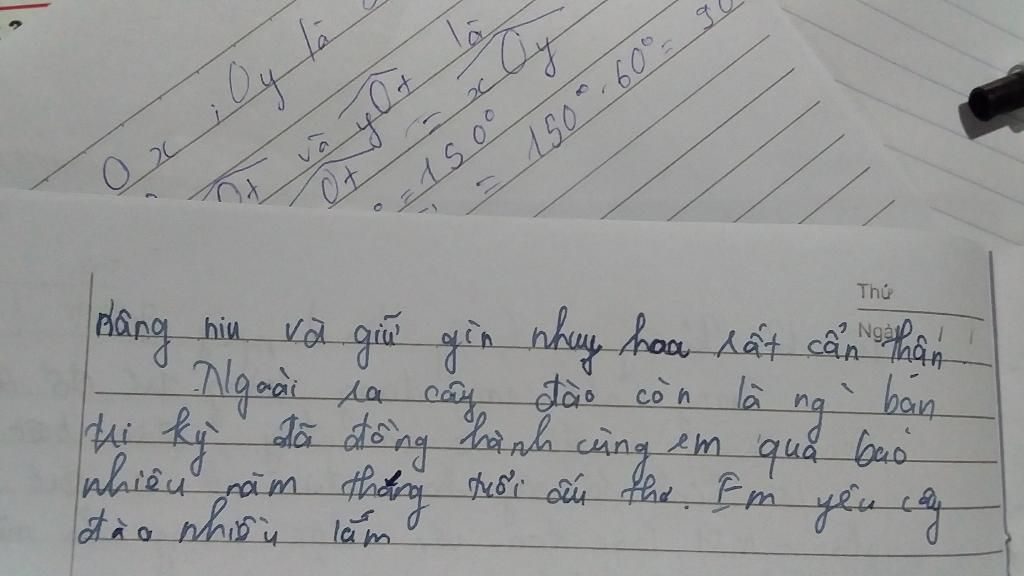 Ox, Oy là
và yOt là
Ot Ot = xOy
= 150°
= 150° - 60° = 90
Thứ
Ngày
nâng niu và giữ gìn nhuy hoa rất cẩn thận
Ngoài ra cây đào còn là ng` bạn
tri kỷ đã đồng hành cùng em quả bao
nhiêu năm tháng tuổi ấu thơ. Em yêu cây
đào nhiều lắm